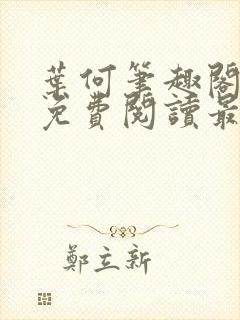 葉何筆趣閣
免費閱讀最
鄭立新